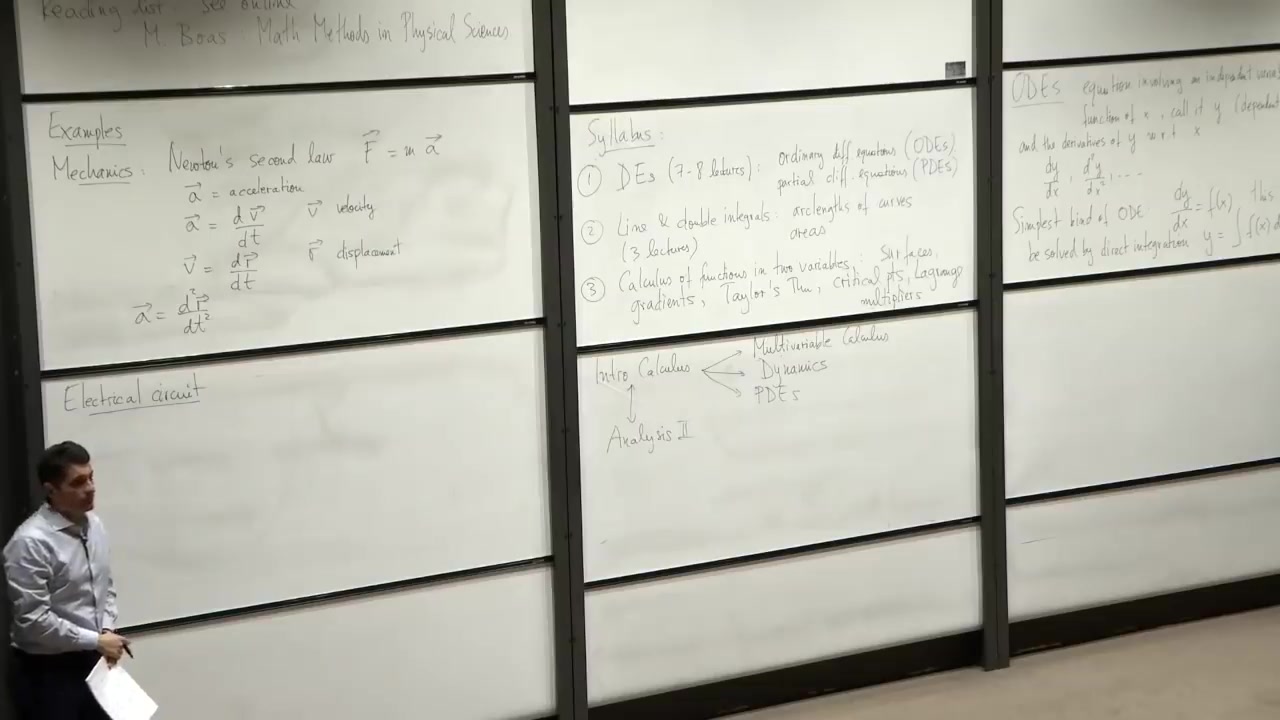 Reading list: see online
M. Boas: Math Methods in Physical Sciences
Examples
Mechanics: Newton's second law F⃗ = m a⃗
a⃗ = acceleration
a⃗ = dv⃗/dt v⃗ velocity
v⃗ = dr⃗/dt r⃗ displacement
a⃗ = d²r⃗/dt²
Electrical circuit
Syllabus:
① DEs (7-8 lectures): ordinary diff equations (ODEs)
partial diff-equations (PDEs)
② Line & double integrals: arclengths of curves
(3 lectures) areas
③ Calculus of functions in two variables: Surfaces,
gradients, Taylor's Thm, critical pts, Lagrange
multipliers
Intro Calculus
Multivariable Calculus
Dynamics
PDEs
Analysis II
ODEs equation involving an independent
function of x, call it y (dependent
and the derivatives of y w.r.t x
dy/dx, d²y/dx², ....
Simplest kind of ODE: dy/dx = f(x) this
be solved by direct integration y = ∫f(x)